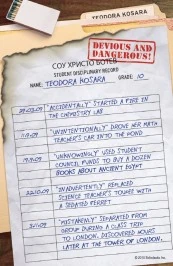 TEODORA KOSARA
DEVIOUS AND
DANGEROUS!
СОУ ХРИСТО БОТЕВ
STUDENT DISCIPLINARY RECORD
NAME: TEODORA KOSARA GRADE: 10
"ACCIDENTALLY" STARTED A FIRE IN
THE CHEMISTRY LAB
"UNINTENTIONALLY" DROVE HER MATH
TEACHER'S CAR INTO THE POND
"UNKNOWINGLY" USED STUDENT
COUNCIL FUNDS TO BUY A DOZEN
BOOKS ABOUT ANCIENT EGYPT
"INADVERTENTLY" REPLACED
SCIENCE TEACHER'S TOUPEE WITH
A SEDATED FERRET
"MISTAKENLY" SEPARATED FROM
GROUP DURING A CLASS TRIP
TO LONDON. DISCOVERED HOURS
LATER AT THE TOWER OF LONDON.